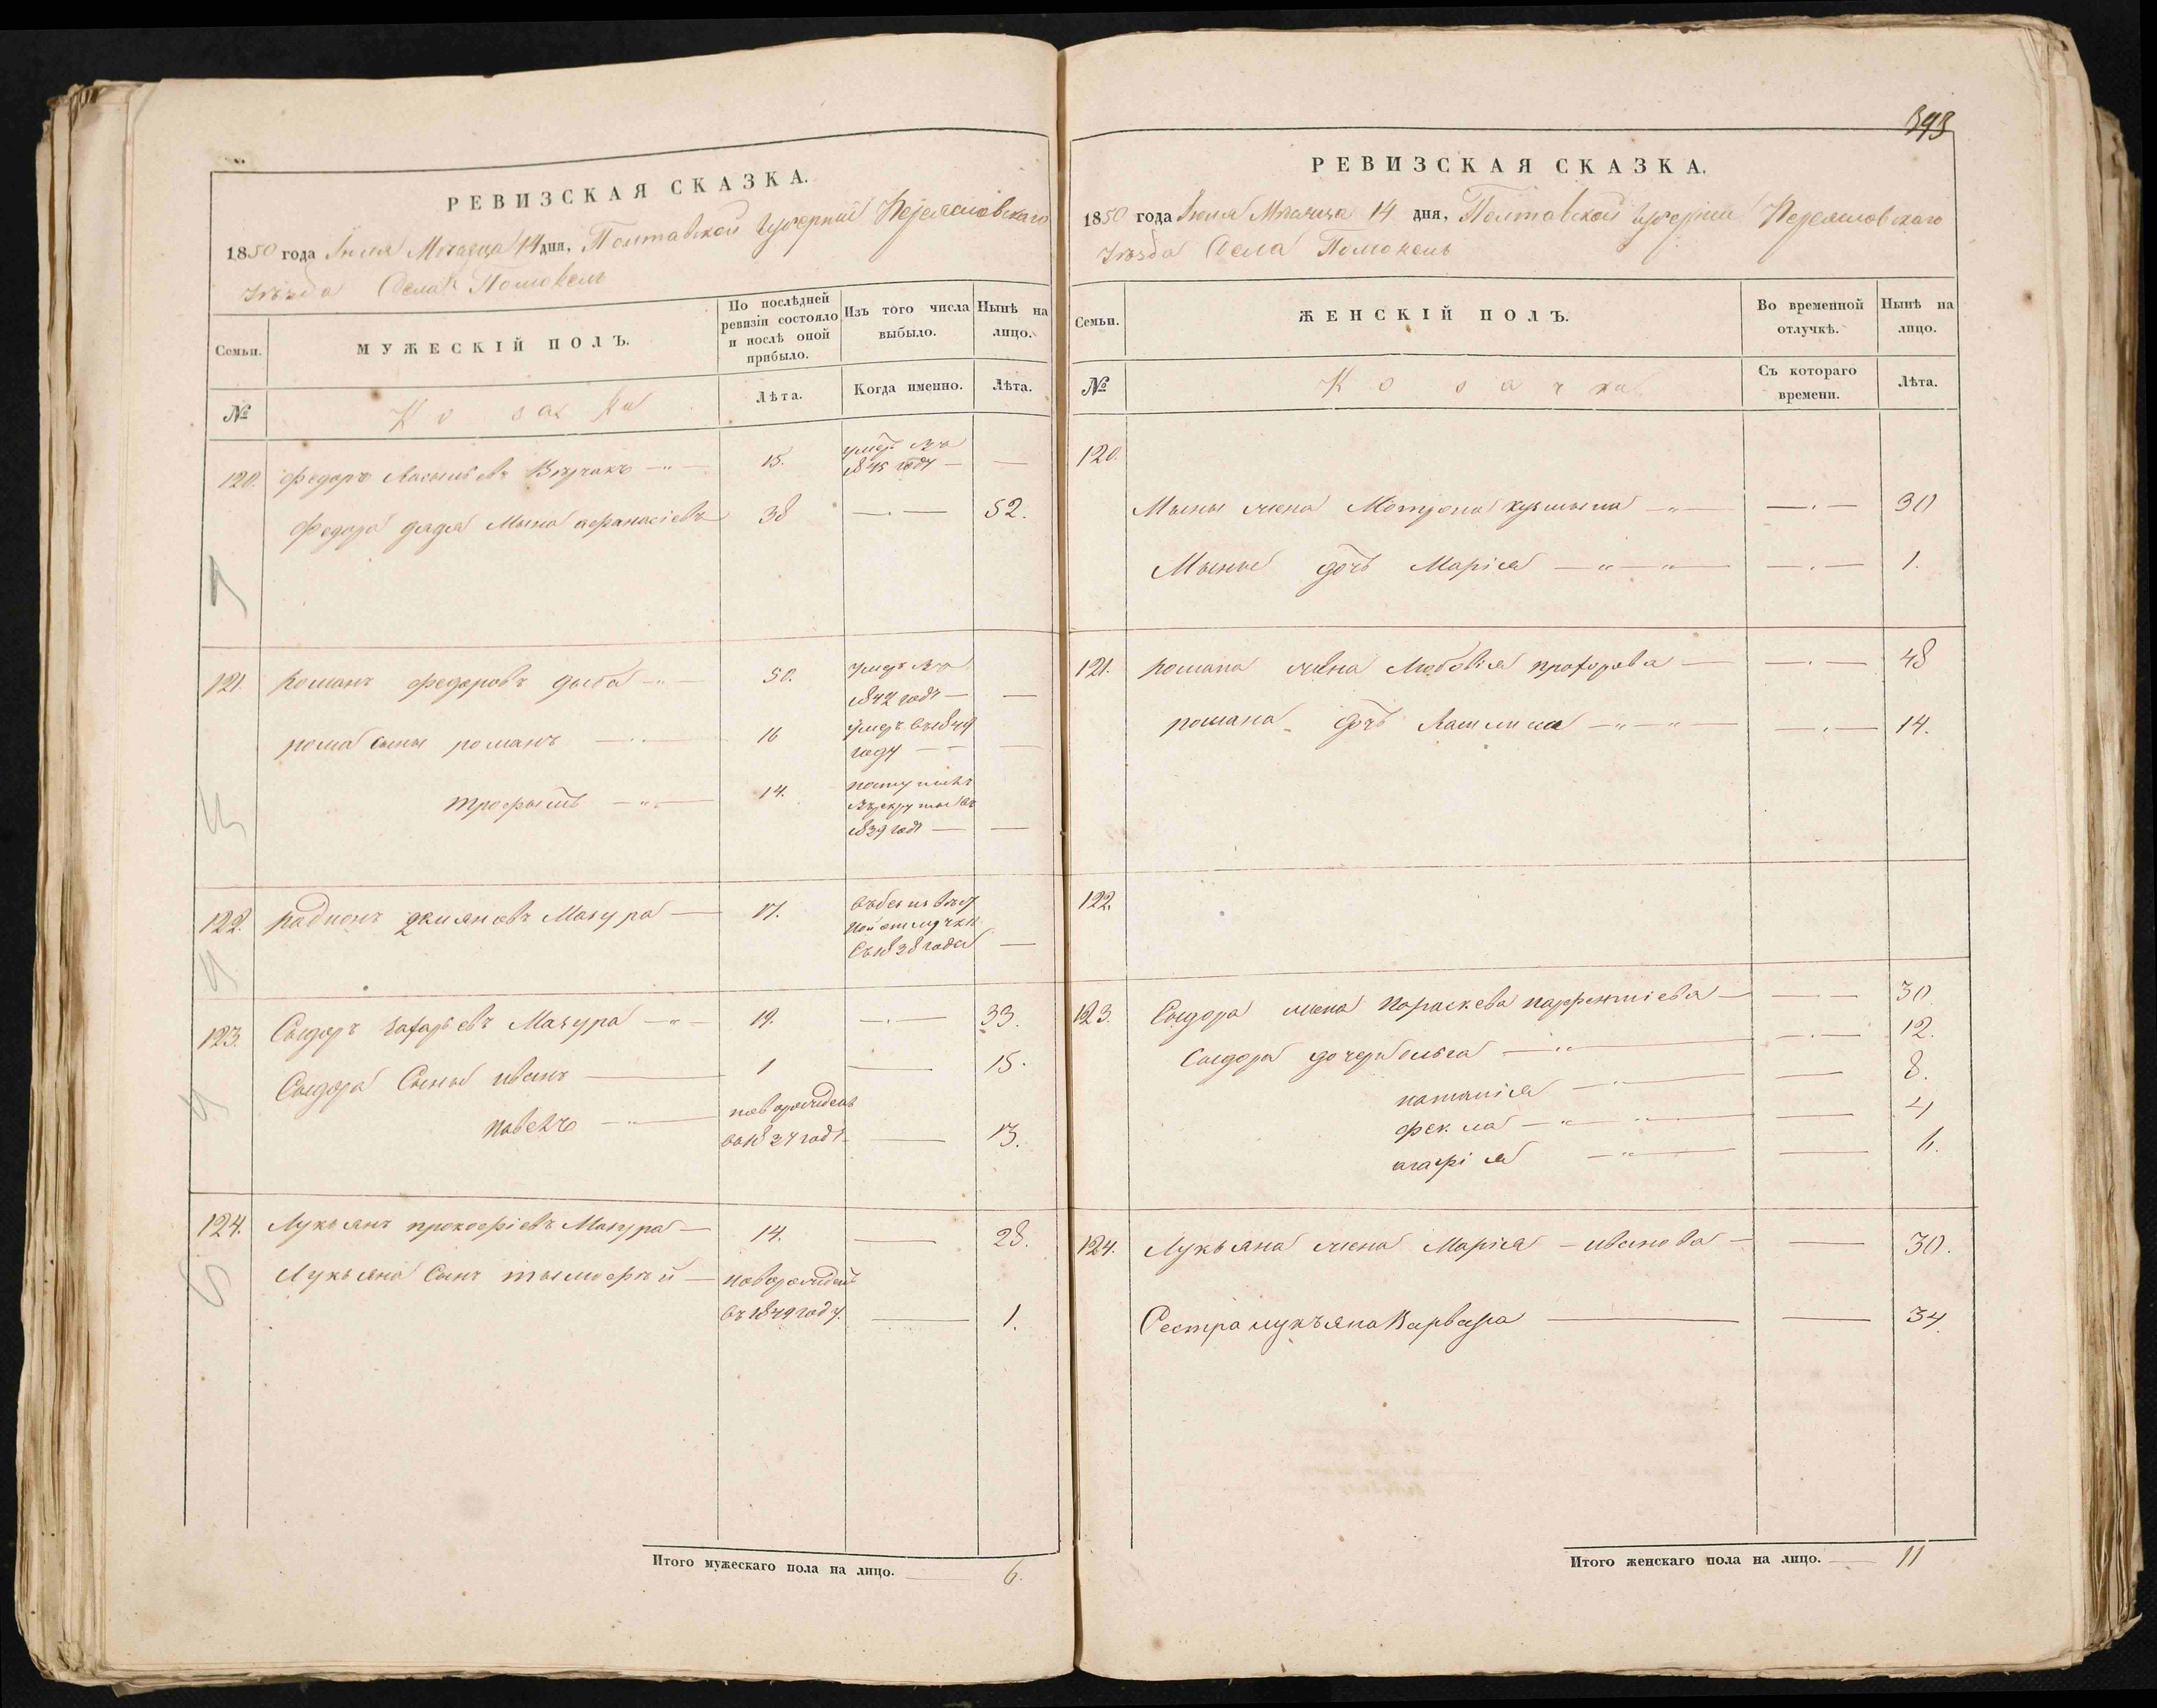 РЕВИЗСКАЯ СКАЗКА.
1850 года Іюля Месяца 14 дня, Полтавской Губерніи Переяславскаго
Уезда Села Помокель
Семьи.
МУЖЕСКІЙ ПОЛЪ.
По послѣдней ревизіи состояло и послѣ оной прибыло.
Изъ того числа выбыло.
Нынѣ на лицо.
№
Козаки
Лѣта.
Когда именно.
Лѣта.
120. Федоръ 15. 1845 году —
Федора дядя Мына афанасіевъ 38 — 52.
121. Романъ федоровъ 50. умеръ въ
1842 годъ — —
рома сыны романъ 16 умеръ въ
году — —
трофымъ 14.
1839 годъ — —
122. Радионъ демяновъ Мазура — 17.
Съ 1838 года —
123. Сыдоръ захарьевъ Мазура 19. — 33.
Сыдора Сыны иванъ 1 — 15.
павелъ новорожденъ
годъ — 13.
124. Лукьянъ прокофіевъ Мазура — 14. — 28.
Лукьяна Сынъ тымофей — новорожденъ
въ 1849 году. — 1.
Итого мужескаго пола на лицо. — 6.
393
РЕВИЗСКАЯ СКАЗКА.
1850 года Іюля Месяца 14 дня, Полтавской Губерніи Переяславскаго
Уезда Села Помокель
Семьи.
ЖЕНСКІЙ ПОЛЪ.
Во временной отлучкѣ.
Нынѣ на лицо.
№
Козачки
Съ котораго времени.
Лѣта.
120.
Мыны жена Мотрона кузьмына — 30
Мыны дочь Марія — 1.
121. Романа жена Любовія прохорова — 48
романа дочь — 14.
122.
123. Сыдора жена Параскева парфентіева — 30
Сыдора дочери ольга — 12.
наталія — 8.
фекла — 4
агафія — 6.
124. Лукьяна жена Марія — иванова — 30.
Сестра лукъяна Варвара — 34.
Итого женскаго пола на лицо. — 11